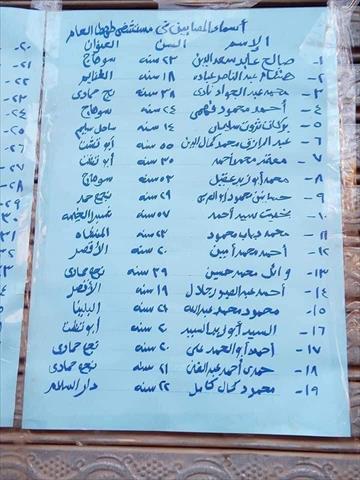 أسماء المصابين في مستشفى طهطا العام
الإسم السن العنوان
١- صالح عابد سعد الدين ٢٣ سنه سوهاج
٢- هشام عبد الناصر عباده ١٨ سنه
٣- محمد عبد الجواد نادى ٣٨ سنه نجع حمادى
٤- أحمد محمود فهمى ٢٤ سنه سوهاج
٥- ثروت سليمان ١٤ سنه ساحل سليم
٦- عبد الرازق محمد كمال الدين ٥٥ سنه أبو تشت
٧- معتز محمد أحمد ٣٠ سنه أبو تشت
٨- محمد أبو زيد عقيل ٥٣ سنه سوهاج
٩- حسانين محمود أبو ٢٩ سنه نجع حمد
١٠- بخيت سيد أحمد ٥٧ سنه
١١- محمد دياب محمود ٢٣ سنه المنشاه
١٢- أحمد محمد أمين ٢٠ سنه الأقصر
١٣- وائل محمد حسين ٣٩ سنه نجع حمادى
١٤- أحمد عبد الصبور جلال ١٩ سنه الأقصر
١٥- محمود محمد عبد الله ٢٦ سنه البلينا
١٦- السيد أبو زيد السيد ٢٠ سنه أبو تشت
١٧- أحمد أبو الحمد على ٢٠ سنه نجع حمادى
١٨- حمدى أحمد عبد ٢١ سنه نجع حمادى
١٩- محمود كمال كامل ٢٢ سنه دار السلام